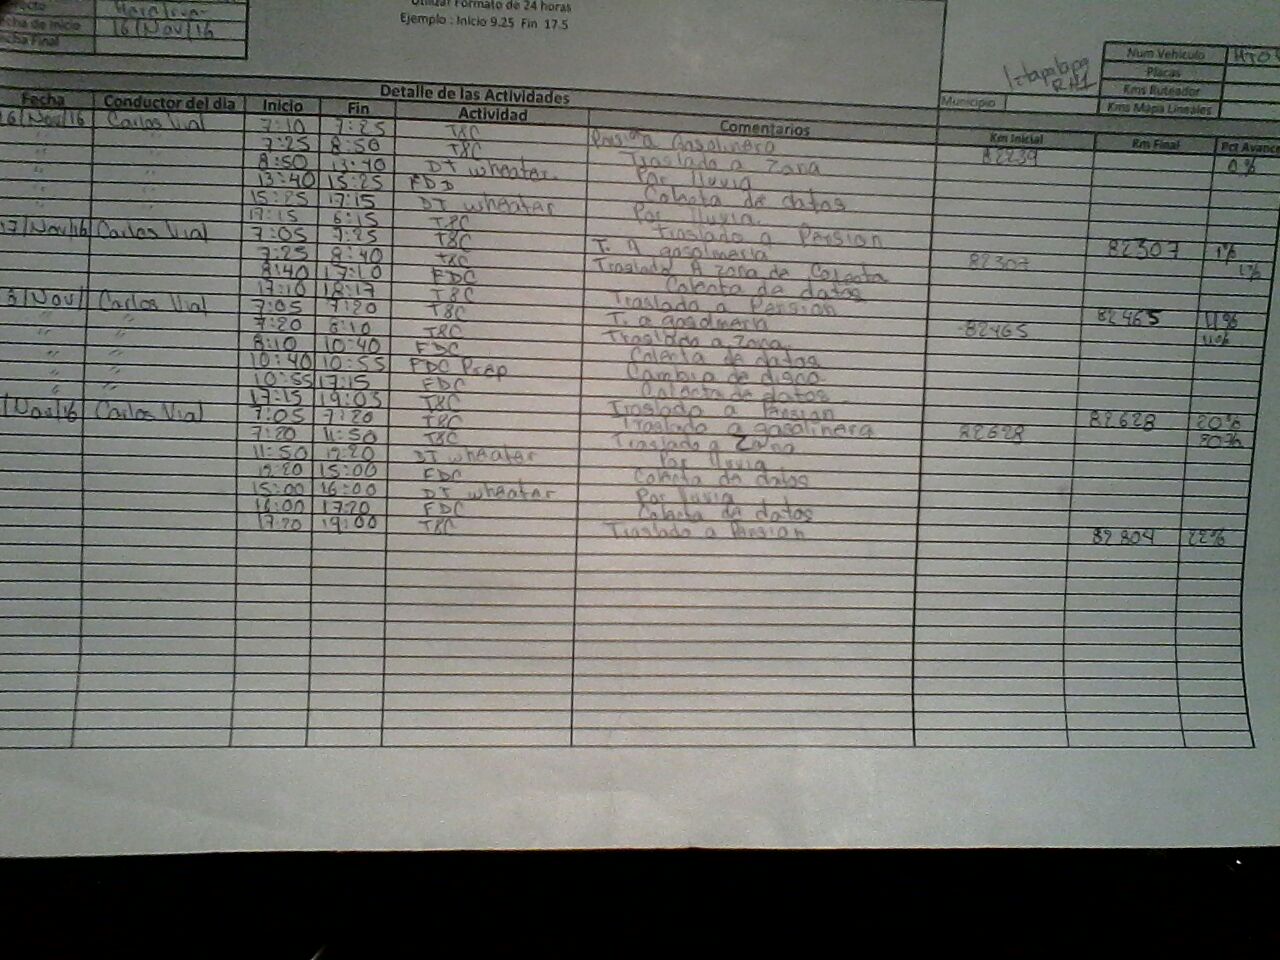 Utilizar Formato de 24 horas
Ejemplo : Inicio 9.25 Fin 17.5
Fecha de Inicio 16/Nov/16
Fecha Final
Iztapalapa
Num Vehiculo
Placas
Kms Ruteador
Municipio
Kms Mapa Lineales
Detalle de las Actividades
Fecha Conductor del dia Inicio Fin Actividad Comentarios Km Inicial Km Final Pct Avance
16/Nov/16 Carlos Vial 7:10 7:25 T&C Gasolinera 82239 0%
" 7:25 8:50 T&C Traslado a Zona
" 8:50 13:40 DT wheater Por lluvia
" 13:40 15:25 Colecta de datos
" 15:25 17:15 DT wheater Por lluvia
" 17:15 6:15 T&C Traslado a Pension 82307 1%
17/Nov/16 Carlos Vial 7:05 7:25 T&C T. A gasolineria 82307 1%
7:25 8:40 T&C Traslado A zona de Colecta
8:40 17:10 FDC Colecta de datos
17:10 18:17 T&C Traslado a Pension 82465 11%
Carlos Vial 7:05 7:20 T. a gasolineria 82465
" " 7:20 8:10 T&C Traslado a Zona
" " 8:10 10:40 FDC Colecta de datos
" " 10:40 10:55 FDC Prep Cambio de disco
" " 10:55 17:15 FDC Colecta de datos
" " 17:15 19:03 T&C Traslado a Pension 82628 20%
/Nov/16 Carlos Vial 7:05 7:20 T&C Traslado a gasolinera 82628 20%
7:20 11:50 T&C Traslado a Zona
11:50 12:20 DT wheater Por lluvia
12:20 15:00 FDC Colecta de datos
15:00 16:00 DT wheater Por lluvia
16:00 17:20 FDC Colecta de datos
17:20 19:00 T&C Traslado a Pension 82804 22%